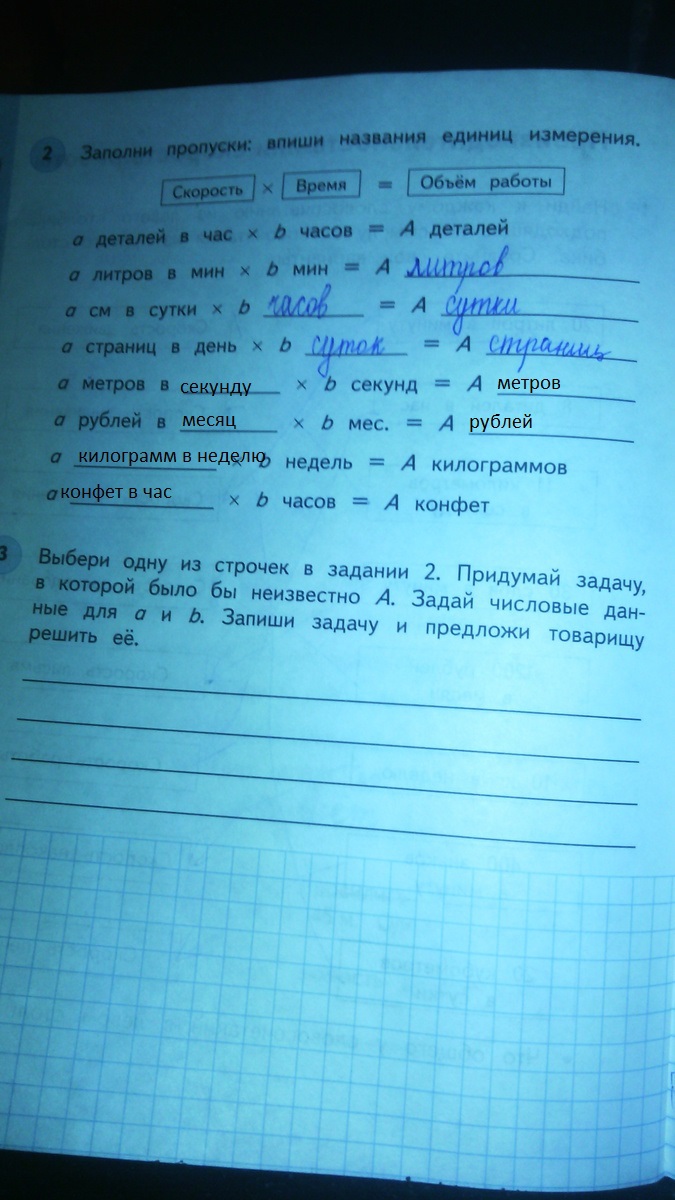 2 Заполни пропуски: впиши названия единиц измерения.
Скорость × Время = Объём работы
a деталей в час × b часов = A деталей
a литров в мин × b мин = A литров
a см в сутки × b часов = A сутки
a страниц в день × b суток = A страниц
a метров в секунду × b секунд = A метров
a рублей в месяц × b мес. = A рублей
a килограмм в неделю × b недель = A килограммов
a конфет в час × b часов = A конфет
3 Выбери одну из строчек в задании 2. Придумай задачу,
в которой было бы неизвестно A. Задай числовые дан-
ные для a и b. Запиши задачу и предложи товарищу
решить её.